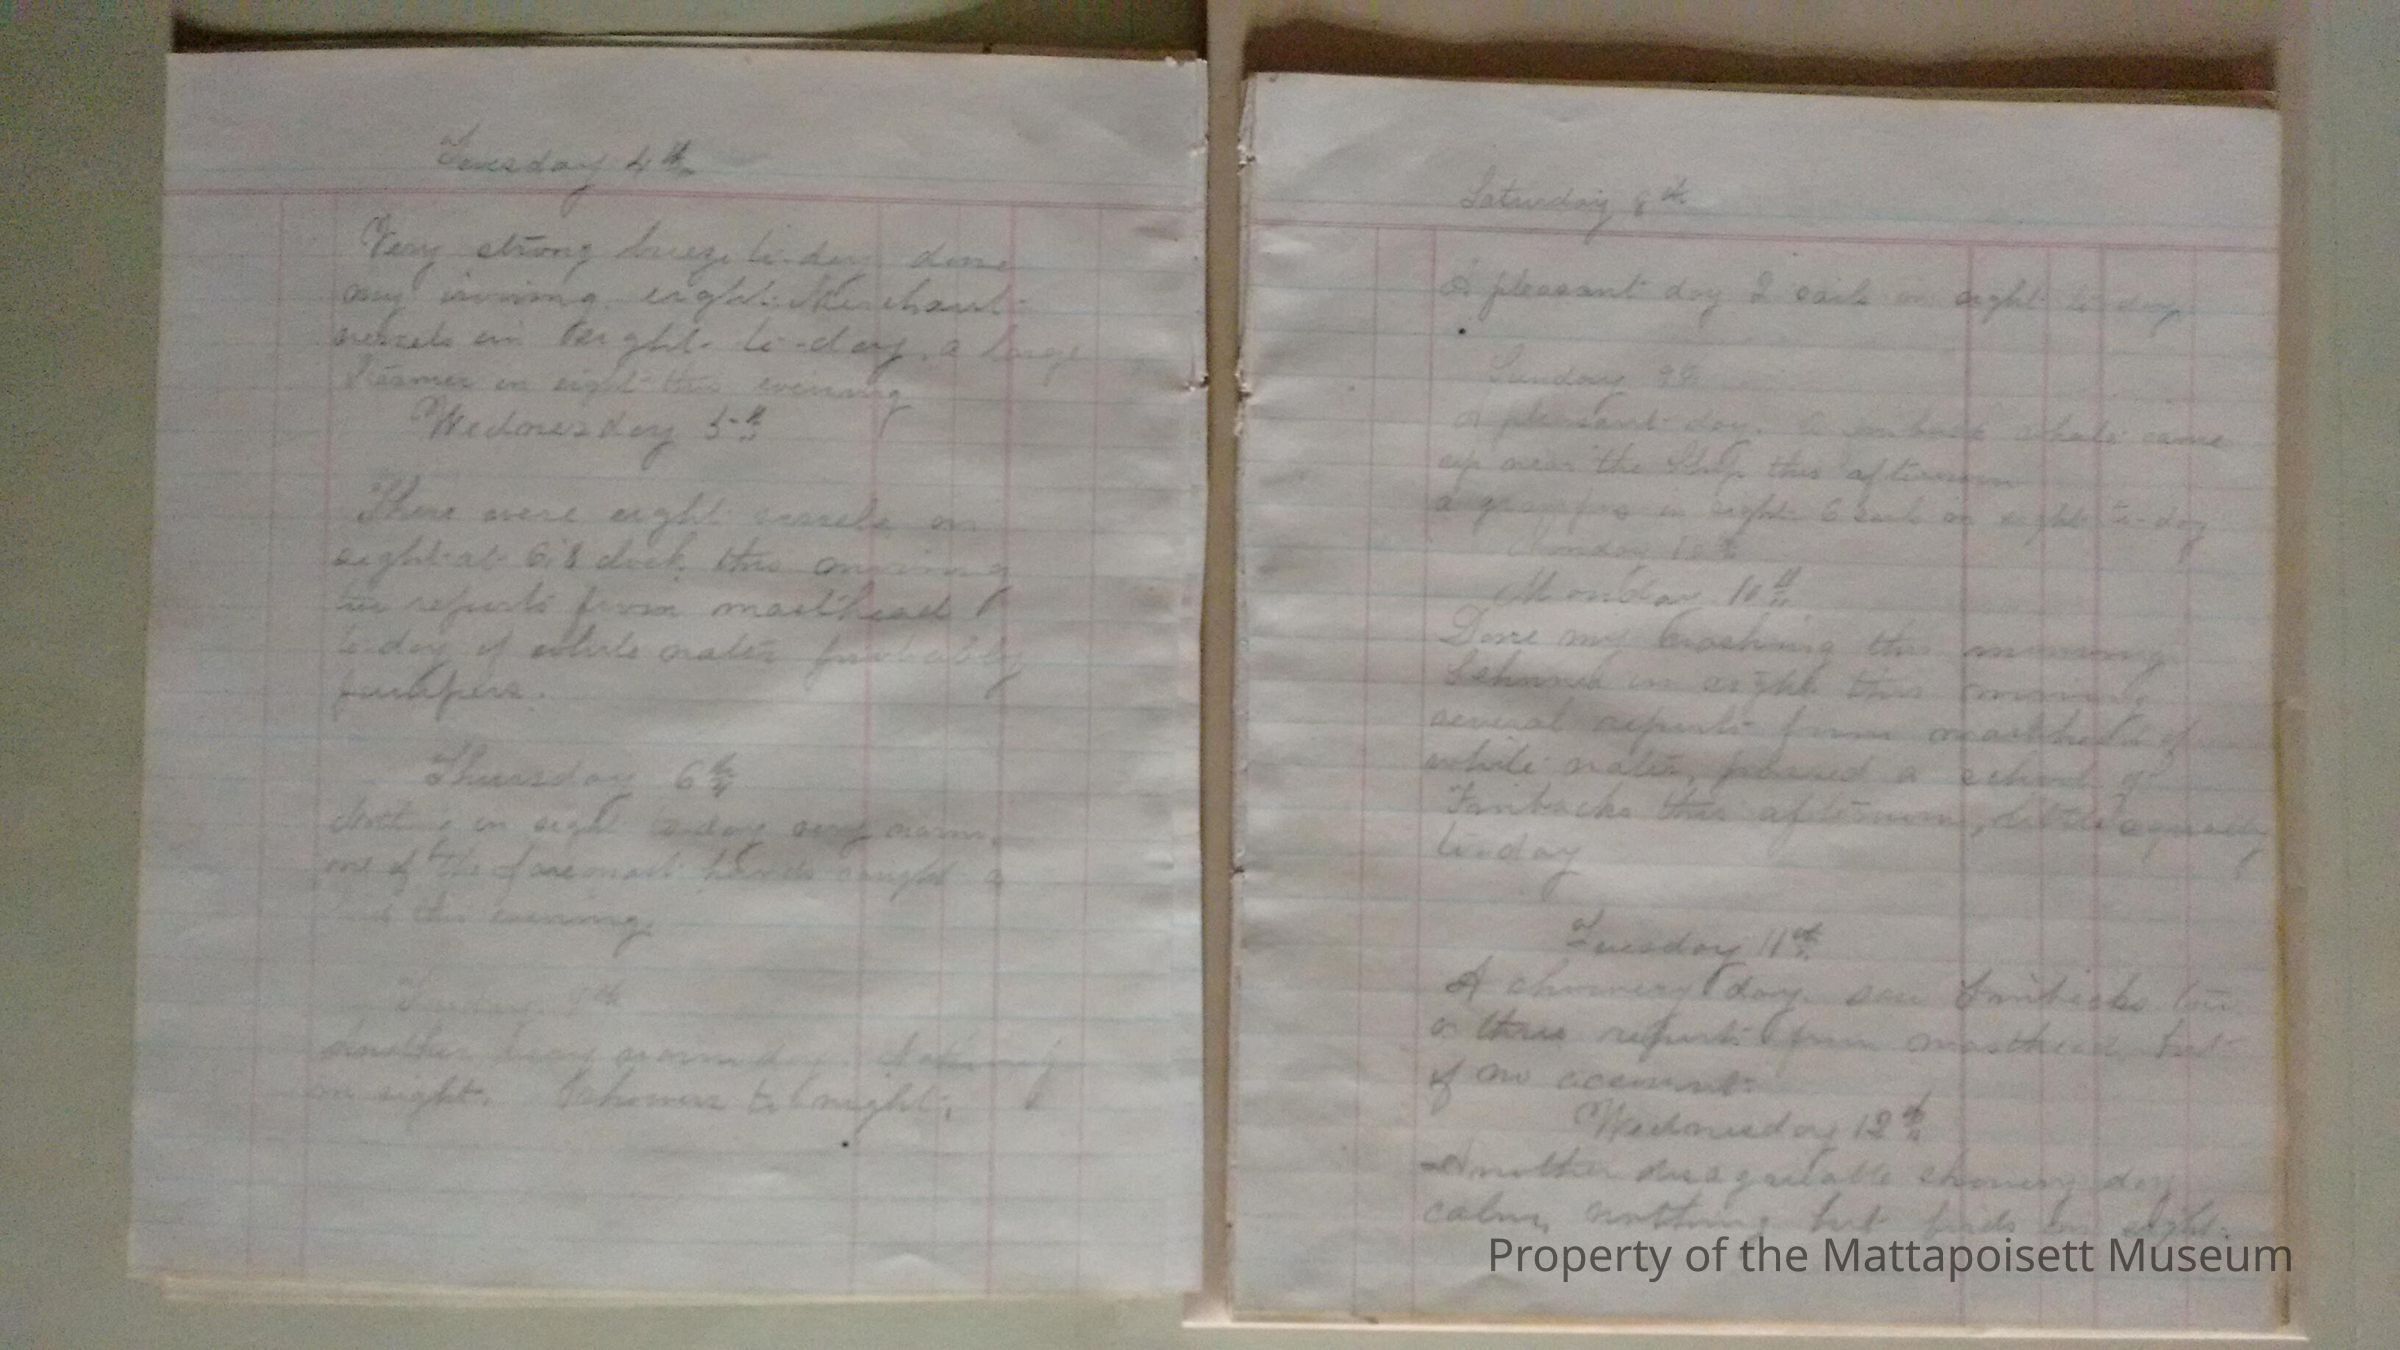 Tuesday 4th
Very strong breeze to-day done
my ironing. eight Merchant
vessels in sight to-day, a large
Steamer in sight this evening
Wednesday 5th
There were eight vessels in
sight at 6 o'clock this morning
two reports from masthead
to-day of white water probably
jumpers.
Thursday 6th
Nothing in sight to-day very warm,
one of the foremast hands caught a
this evening.
Friday 7th
Another very warm day. Nothing
in sight. Showers to-night.
Saturday 8th
A pleasant day 2 sails in sight to-day
Sunday 9th
A pleasant day. a finback whale came
up near the Ship this afternoon
a grampus in sight 6 sail in sight to-day
Monday 10th
Monday 10th
Done my washing this morning
Schooner in sight this morning
several reports from masthead of
white water, passed a school of
Finbacks this afternoon, little squally
to-day
Tuesday 11th
A showery day. saw Finbacks two
or three reports from masthead but
of no account.
Wednesday 12th
Another disagreeable showery day
calm, nothing but birds in sight.
Property of the Mattapoisett Museum